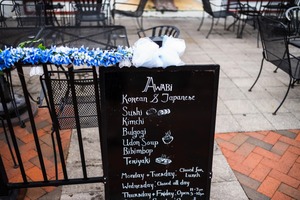 Awabi
Korean & Japanese
Sushi
Kimchi
Bulgogi
Udon Soup
Bibimbop
Teriyaki
Monday + Tuesday / Closed for Lunch
Wednesday / Closed all day
Thursday + Friday